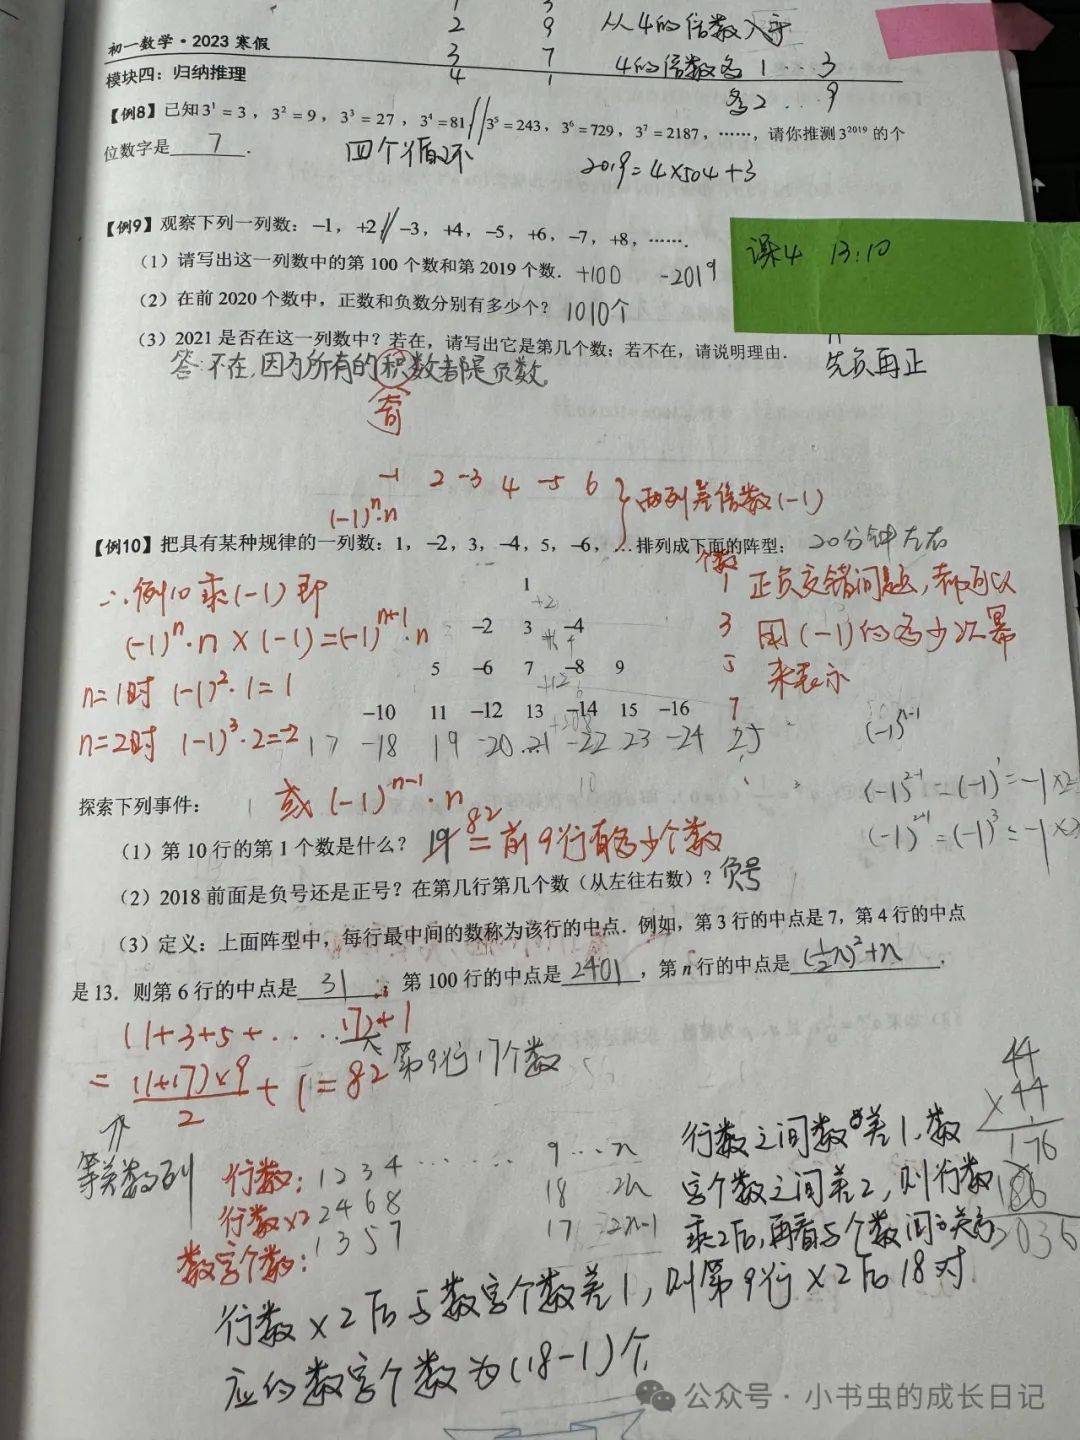 1 3
2 9 从4的倍数入手
初一数学·2023寒假
3 7 4的倍数多1…3
模块四：归纳推理
4 1 多2…9
【例8】已知3¹=3，3²=9，3³=27，3⁴=81//3⁵=243，3⁶=729，3⁷=2187，……，请你推测3²⁰¹⁹的个
位数字是 7 ．
四个循环
2019=4×504+3
【例9】观察下列一列数：−1，+2//−3，+4，−5，+6，−7，+8，……．
课4 13:10
（1）请写出这一列数中的第100个数和第2019个数．+100 -2019
（2）在前2020个数中，正数和负数分别有多少个？1010个
（3）2021是否在这一列数中？若在，请写出它是第几个数；若不在，请说明理由．
先负再正
答：不在，因为所有的积数都是负数。
奇
-1 2 -3 4 -5 6 } 两列差倍数(-1)
(-1)ⁿ·n
【例10】把具有某种规律的一列数：1，−2，3，−4，5，−6，…排列成下面的阵型：20分钟左右
个数
∴例10乘(-1)即
1 1 正负交错问题，都可以
+2
(-1)ⁿ·n×(-1)=(-1)ⁿ⁺¹·n
−2 3 −4 3 用(-1)的多少次幂
5 −6 7 −8 9 5 来表示
n=1时 (-1)²·1=1
+12
−10 11 −12 13 −14 15 −16 7
(-1)ⁿ⁻¹
n=2时 (-1)³·2=-2
17 -18 19 -20 21 -22 23 -24 25
探索下列事件：
或(-1)ⁿ⁻¹·n
(-1)²⁻¹=(-1)¹=-1×2
(-1)²⁺¹=(-1)³=-1×
（1）第10行的第1个数是什么？19 82=前9行有多少个数
（2）2018前面是负号还是正号？在第几行第几个数（从左往右数）？负号
（3）定义：上面阵型中，每行最中间的数称为该行的中点．例如，第3行的中点是7，第4行的中点
是13．则第6行的中点是 31 ；第100行的中点是 2401 ，第n行的中点是 (½n)²+n ．
(1+3+5+……17)+1
=(1+17)×9/2+1=82 第9行17个数
等差数列
44
×44
176
186
2036
行数：1 2 3 4 …… 9…n
行数×2 2 4 6 8 18 2n
数字个数：1 3 5 7 17 2n-1
行数之间数差1，数
字个数之间差2，则行数
乘2后，再看与个数间的关系
行数×2后与数字个数差1，则第9行×2后18对
应的数字个数为(18-1)个
公众号·小书虫的成长日记